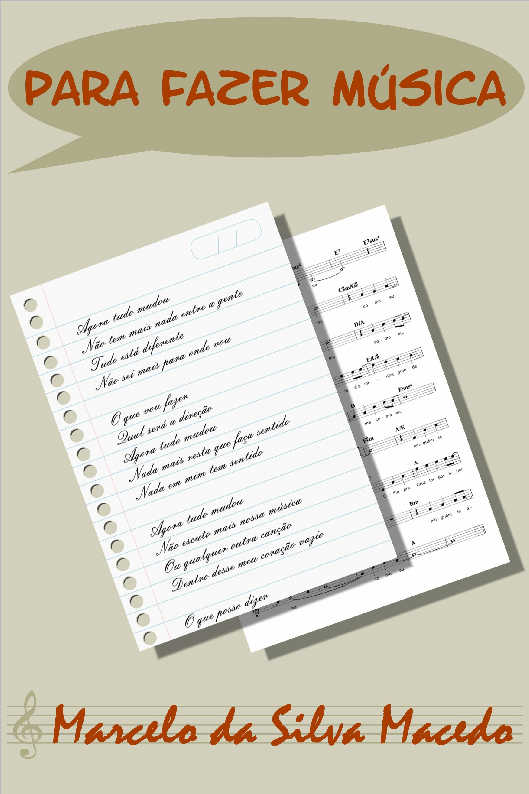 PARA FAZER MÚSICA
Agora tudo mudou
Não tem mais nada entre a gente
Tudo está diferente
Não sei mais para onde vou
O que vou fazer
Qual será a direção
Agora tudo mudou
Nada mais resta que faça sentido
Nada em mim tem sentido
Agora tudo mudou
Não escuto mais nossa música
Ou qualquer outra canção
Dentro desse meu coração vazio
O que posso dizer
Marcelo da Silva Macedo